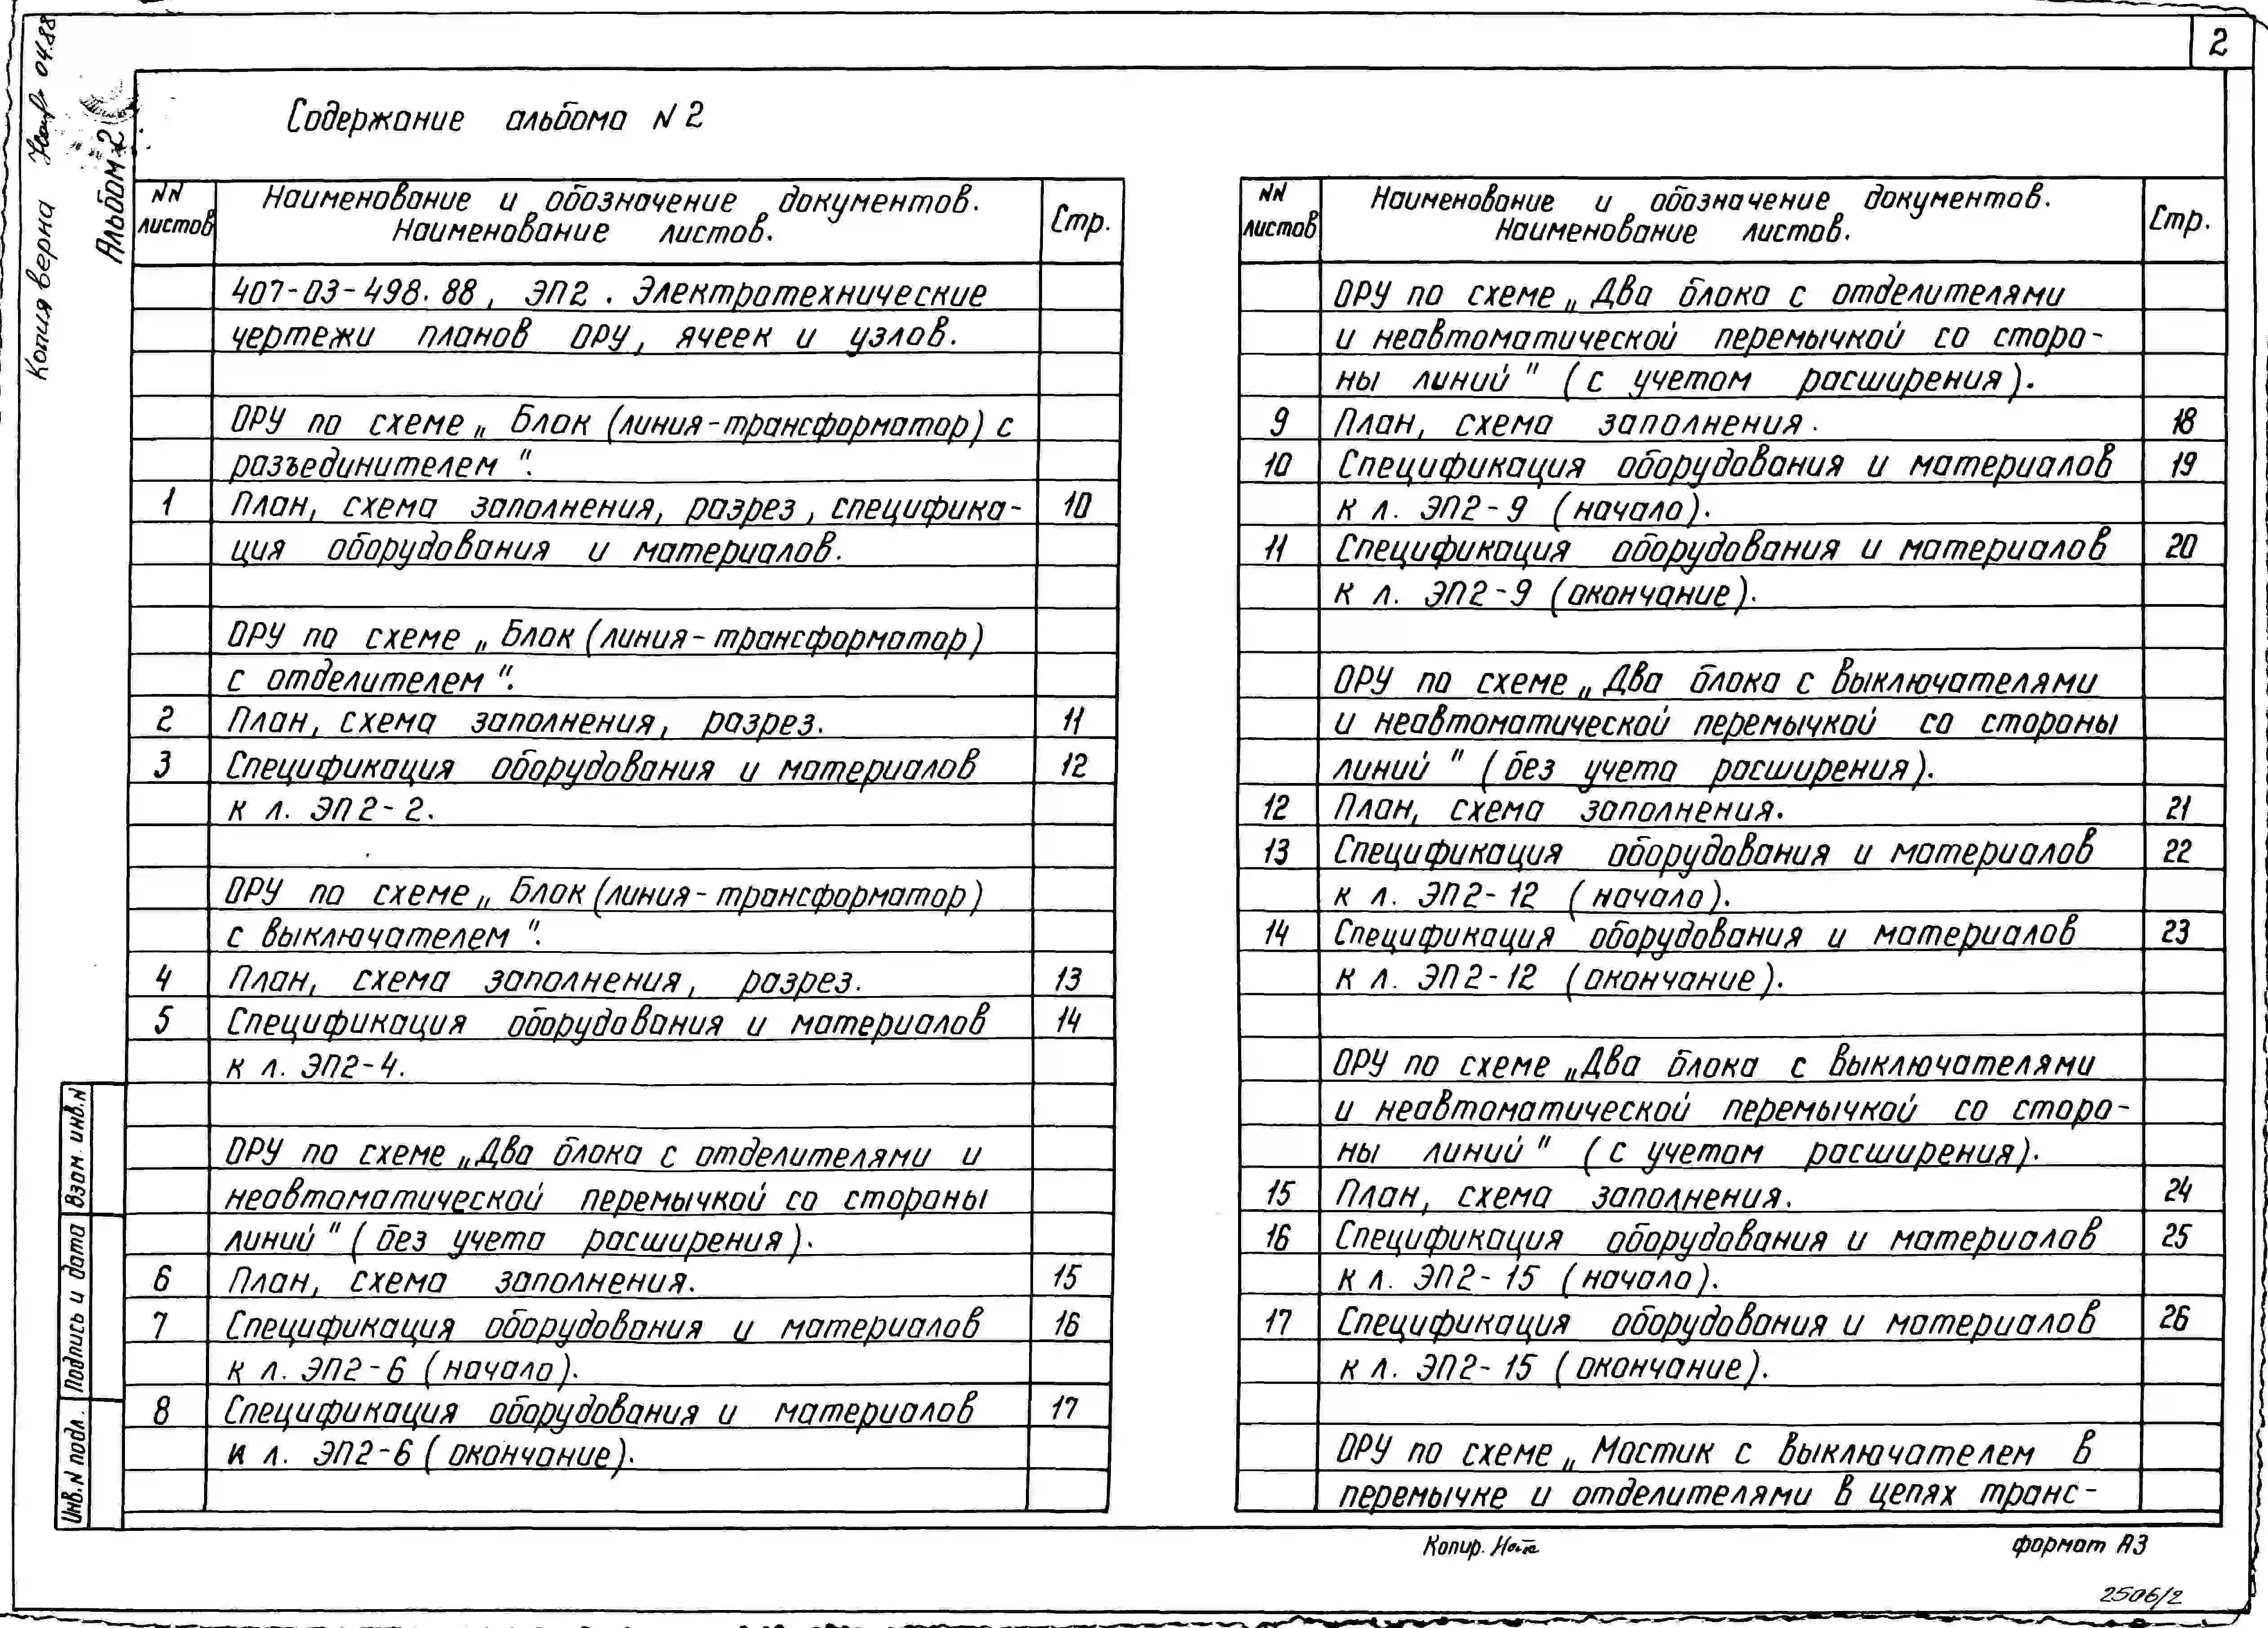 2
Копия верна 04.88
Альбом 2
Содержание альбома N 2
NN листов
Наименование и обозначение документов.
Наименование листов.
Стр.
407-03-498.88, ЭП2. Электротехнические
чертежи планов ОРУ, ячеек и узлов.
ОРУ по схеме „Блок (линия-трансформатор) с
разъединителем".
1 План, схема заполнения, разрез, специфика- 10
ция оборудования и материалов.
ОРУ по схеме „Блок (линия-трансформатор)
с отделителем".
2 План, схема заполнения, разрез. 11
3 Спецификация оборудования и материалов 12
к л. ЭП2-2.
ОРУ по схеме „Блок (линия-трансформатор)
с выключателем".
4 План, схема заполнения, разрез. 13
5 Спецификация оборудования и материалов 14
к л. ЭП2-4.
ОРУ по схеме „Два блока с отделителями и
неавтоматической перемычкой со стороны
линий" (без учета расширения).
6 План, схема заполнения. 15
7 Спецификация оборудования и материалов 16
к л. ЭП2-6 (начало).
8 Спецификация оборудования и материалов 17
к л. ЭП2-6 (окончание).
NN листов
Наименование и обозначение документов.
Наименование листов.
Стр.
ОРУ по схеме „Два блока с отделителями
и неавтоматической перемычкой со сторо-
ны линий" (с учетом расширения).
9 План, схема заполнения. 18
10 Спецификация оборудования и материалов 19
к л. ЭП2-9 (начало).
11 Спецификация оборудования и материалов 20
к л. ЭП2-9 (окончание).
ОРУ по схеме „Два блока с выключателями
и неавтоматической перемычкой со стороны
линий" (без учета расширения).
12 План, схема заполнения. 21
13 Спецификация оборудования и материалов 22
к л. ЭП2-12 (начало).
14 Спецификация оборудования и материалов 23
к л. ЭП2-12 (окончание).
ОРУ по схеме „Два блока с выключателями
и неавтоматической перемычкой со сторо-
ны линий" (с учетом расширения).
15 План, схема заполнения. 24
16 Спецификация оборудования и материалов 25
к л. ЭП2-15 (начало).
17 Спецификация оборудования и материалов 26
к л. ЭП2-15 (окончание).
ОРУ по схеме „Мостик с выключателем в
перемычке и отделителями в цепях транс-
Инв.N подл. Подпись и дата Взам. инв.N
Копир.
формат А3
2506/2